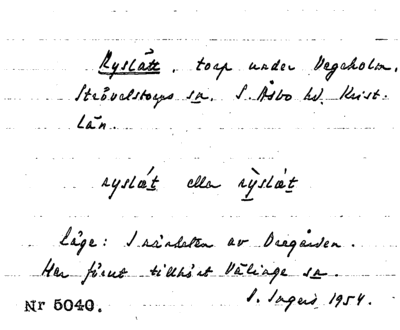 Ryslätt, torp under Vegeholm,
Strövelstorps sn. S. Åsbo hd. Krist.
län.
ryslǽt eller rỳslæt
Läge: I närheten av Vegården.
Har förut tillhört Välinge sn.
S. Ingers 1954.
Nr 5040.